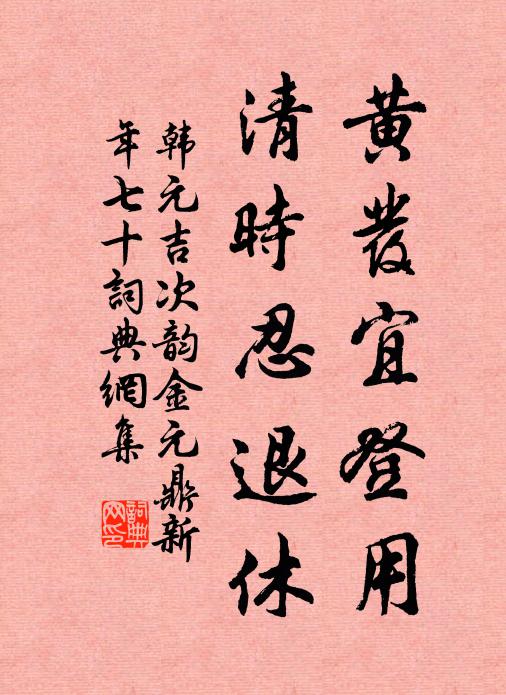 黄发宜登用
清時忍退休
韩元吉次韵金元鼎新
年七十詞典網集
詞典
网印